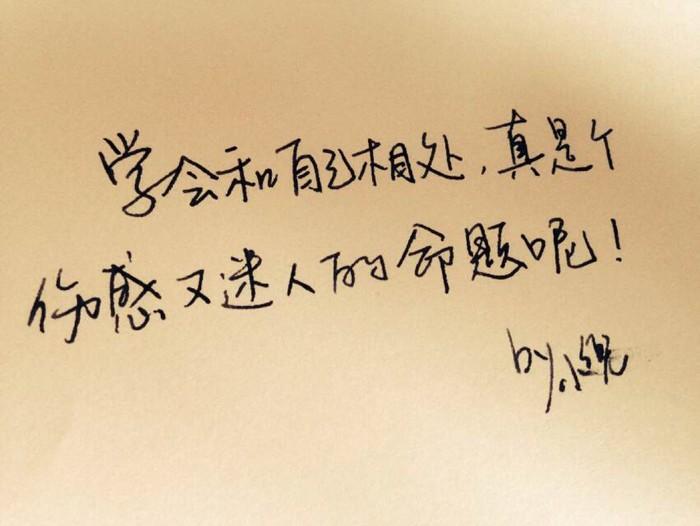 学会和自己相处，真是个
伤感又迷人的命题呢！
by小